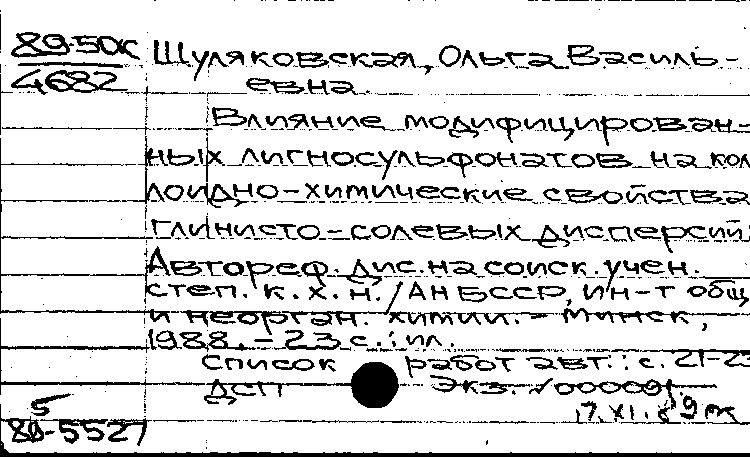 89-50К Шуляковская, Ольга Василь-
4682 евна.
Влияние модифицирован-
ных лигносульфонатов на кол
лоидно-химические свойства
глинисто-солевых дисперсий:
Автореф. дис. на соиск. учен.
степ. к. х. н. / АН БССР, ин-т общ
и неорган. химии. - Минск,
1988. - 23 с. : ил.
Список работ авт.: с. 21-23
ДСП Экз. √000091.
5 17.XI.89
89-5527